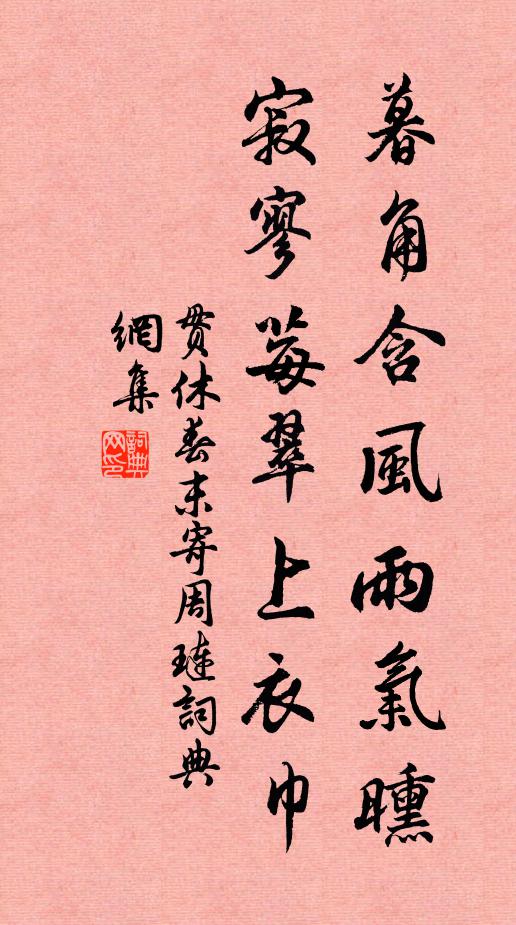 暮角含風雨氣曛
寂寥莓翠上衣巾
貫休春末寄周璉詞典
網集
詞典
网印